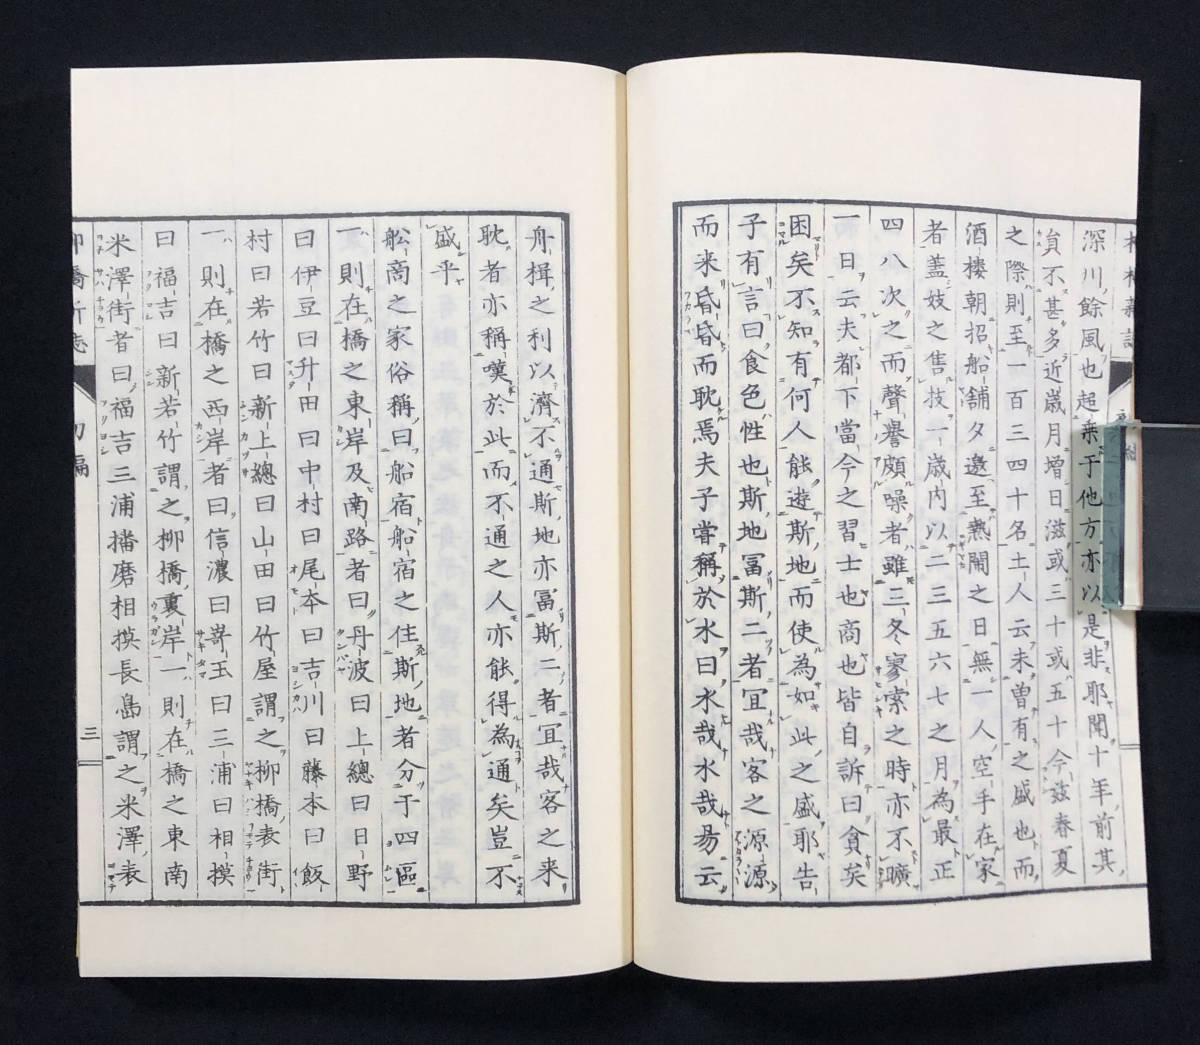 深川餘風也起乘于他方亦以是非耶聞十年前其
貟不甚多近歲月增日滋或三十或五十今玆春夏
之際則至一百三四十名土人云未曽有之盛也而
酒樓朝招船舗夕邀至熱閙之日無一人空手在家
者蓋妓之售技一歲内以二三五六七之月為最正
四八次之而聲譽頗噪者雖三冬寥索之時亦不曠
一日云夫都下當今之習士也商也皆自訴曰貧矣
困矣不知有何人能遊斯地而使為如此之盛耶告
子有言曰食色性也斯地冨斯二者冝哉客之源源
而来昏昏而耽焉夫子嘗稱於水曰水哉水哉昜云
舟楫之利以濟不通斯地亦冨斯二者冝哉客之来
耽者亦稱嘆於此而不通之人亦能得為通矣豈不
盛乎
舩商之家俗稱曰船宿船宿之住斯地者分于四區
一則在橋之東岸及南路者曰丹波曰上總曰日野
曰伊豆曰升田曰中村曰尾本曰吉川曰藤本曰飯
村曰若竹曰新上總曰山田曰竹屋謂之柳橋表街
一則在橋之西岸者曰信濃曰嵜玉曰三浦曰相摸
曰福吉曰新若竹謂之柳橋裏岸一則在橋之東南
米澤街者曰福吉三浦播磨相摸長島謂之米澤表
柳橋新志
初編
三